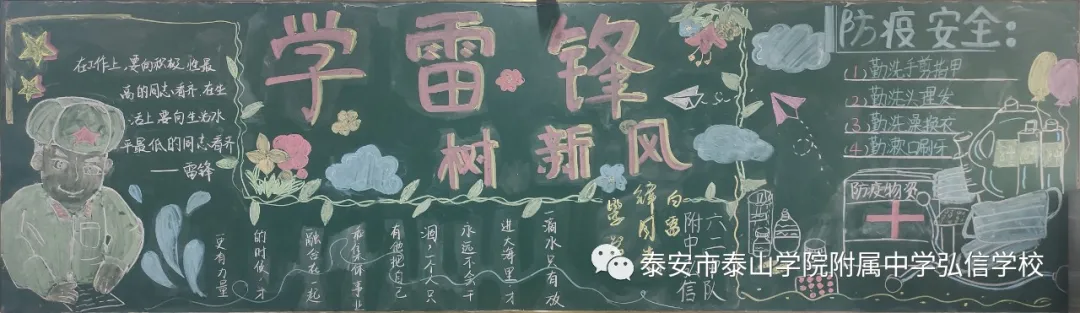 在工作上,要向积极性最
高的同志看齐,在生
活上要向生活水
平最低的同志看齐
——雷锋
学雷锋
树新风
一滴水只有放
进大海里才
永远不会干
涸,一个人只
有他把自己
和集体事业
融合在一起
的时候,才
更有力量
向雷
锋同志
学习
六二队
附中
信
防疫安全:
(1)勤洗手剪指甲
(2)勤洗头理发
(3)勤洗澡换衣
(4)勤漱口刷牙
防疫物资
泰安市泰山学院附属中学弘信学校